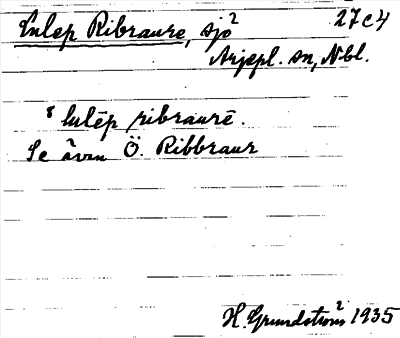 Lulep Ribraure, sjö² 27c4
Arjepl. sn, Nbl.
lulēp ribraurē.
Se även Ö. Ribbraur
H. Grundström² 1935